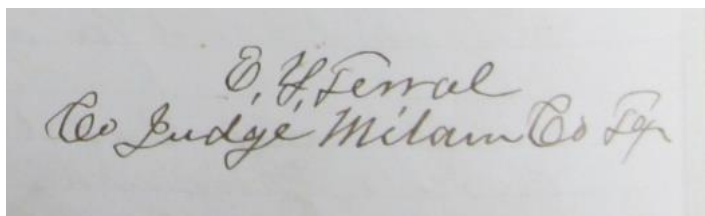 E, Y, Terral
Co Judge Milam Co Tex